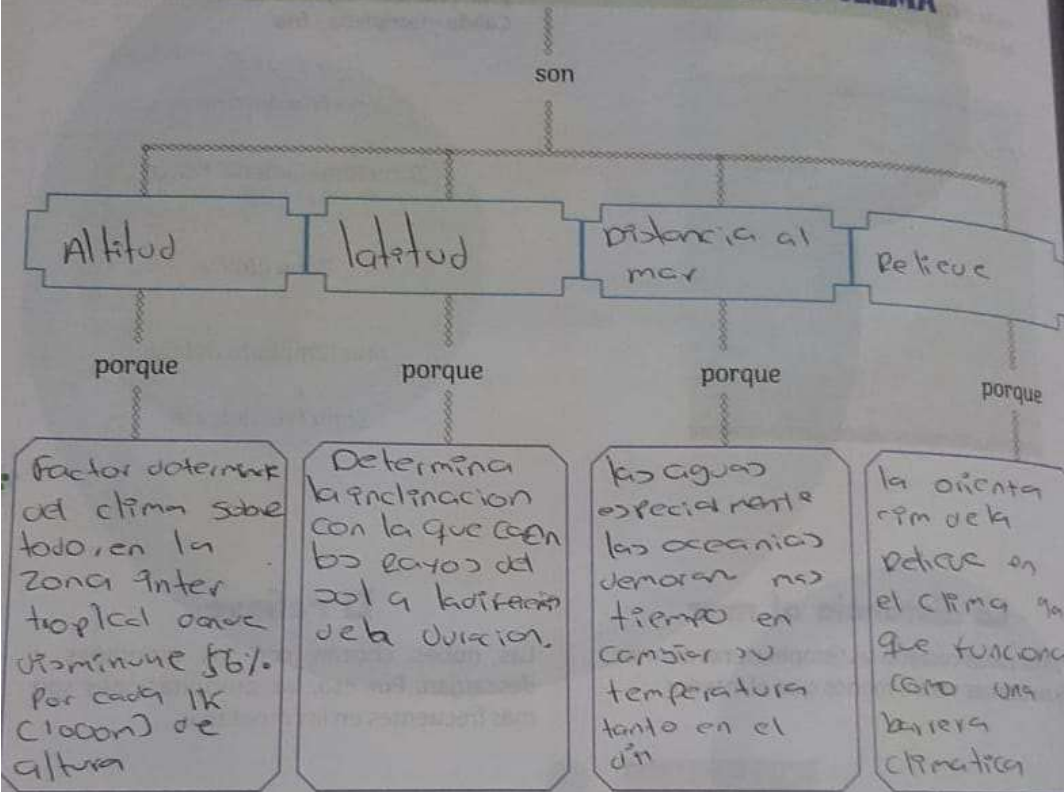 son
Altitud
latitud
Distancia al
mar
Relieve
porque
porque
porque
porque
Factor
del clima sobre
todo, en la
zona inter
tropical donde
disminuye
Por cada 1k
(1000m) de
altura
Determina
la inclinacion
con la que caen
los rayos del
sol a
dela duracion.
las aguas
especialmente
las oceanicas
demoran mas
tiempo en
cambiar su
temperatura
tanto en el
la orienta
dela
Relieve en
el clima
que funciona
como una
barrera
climatica